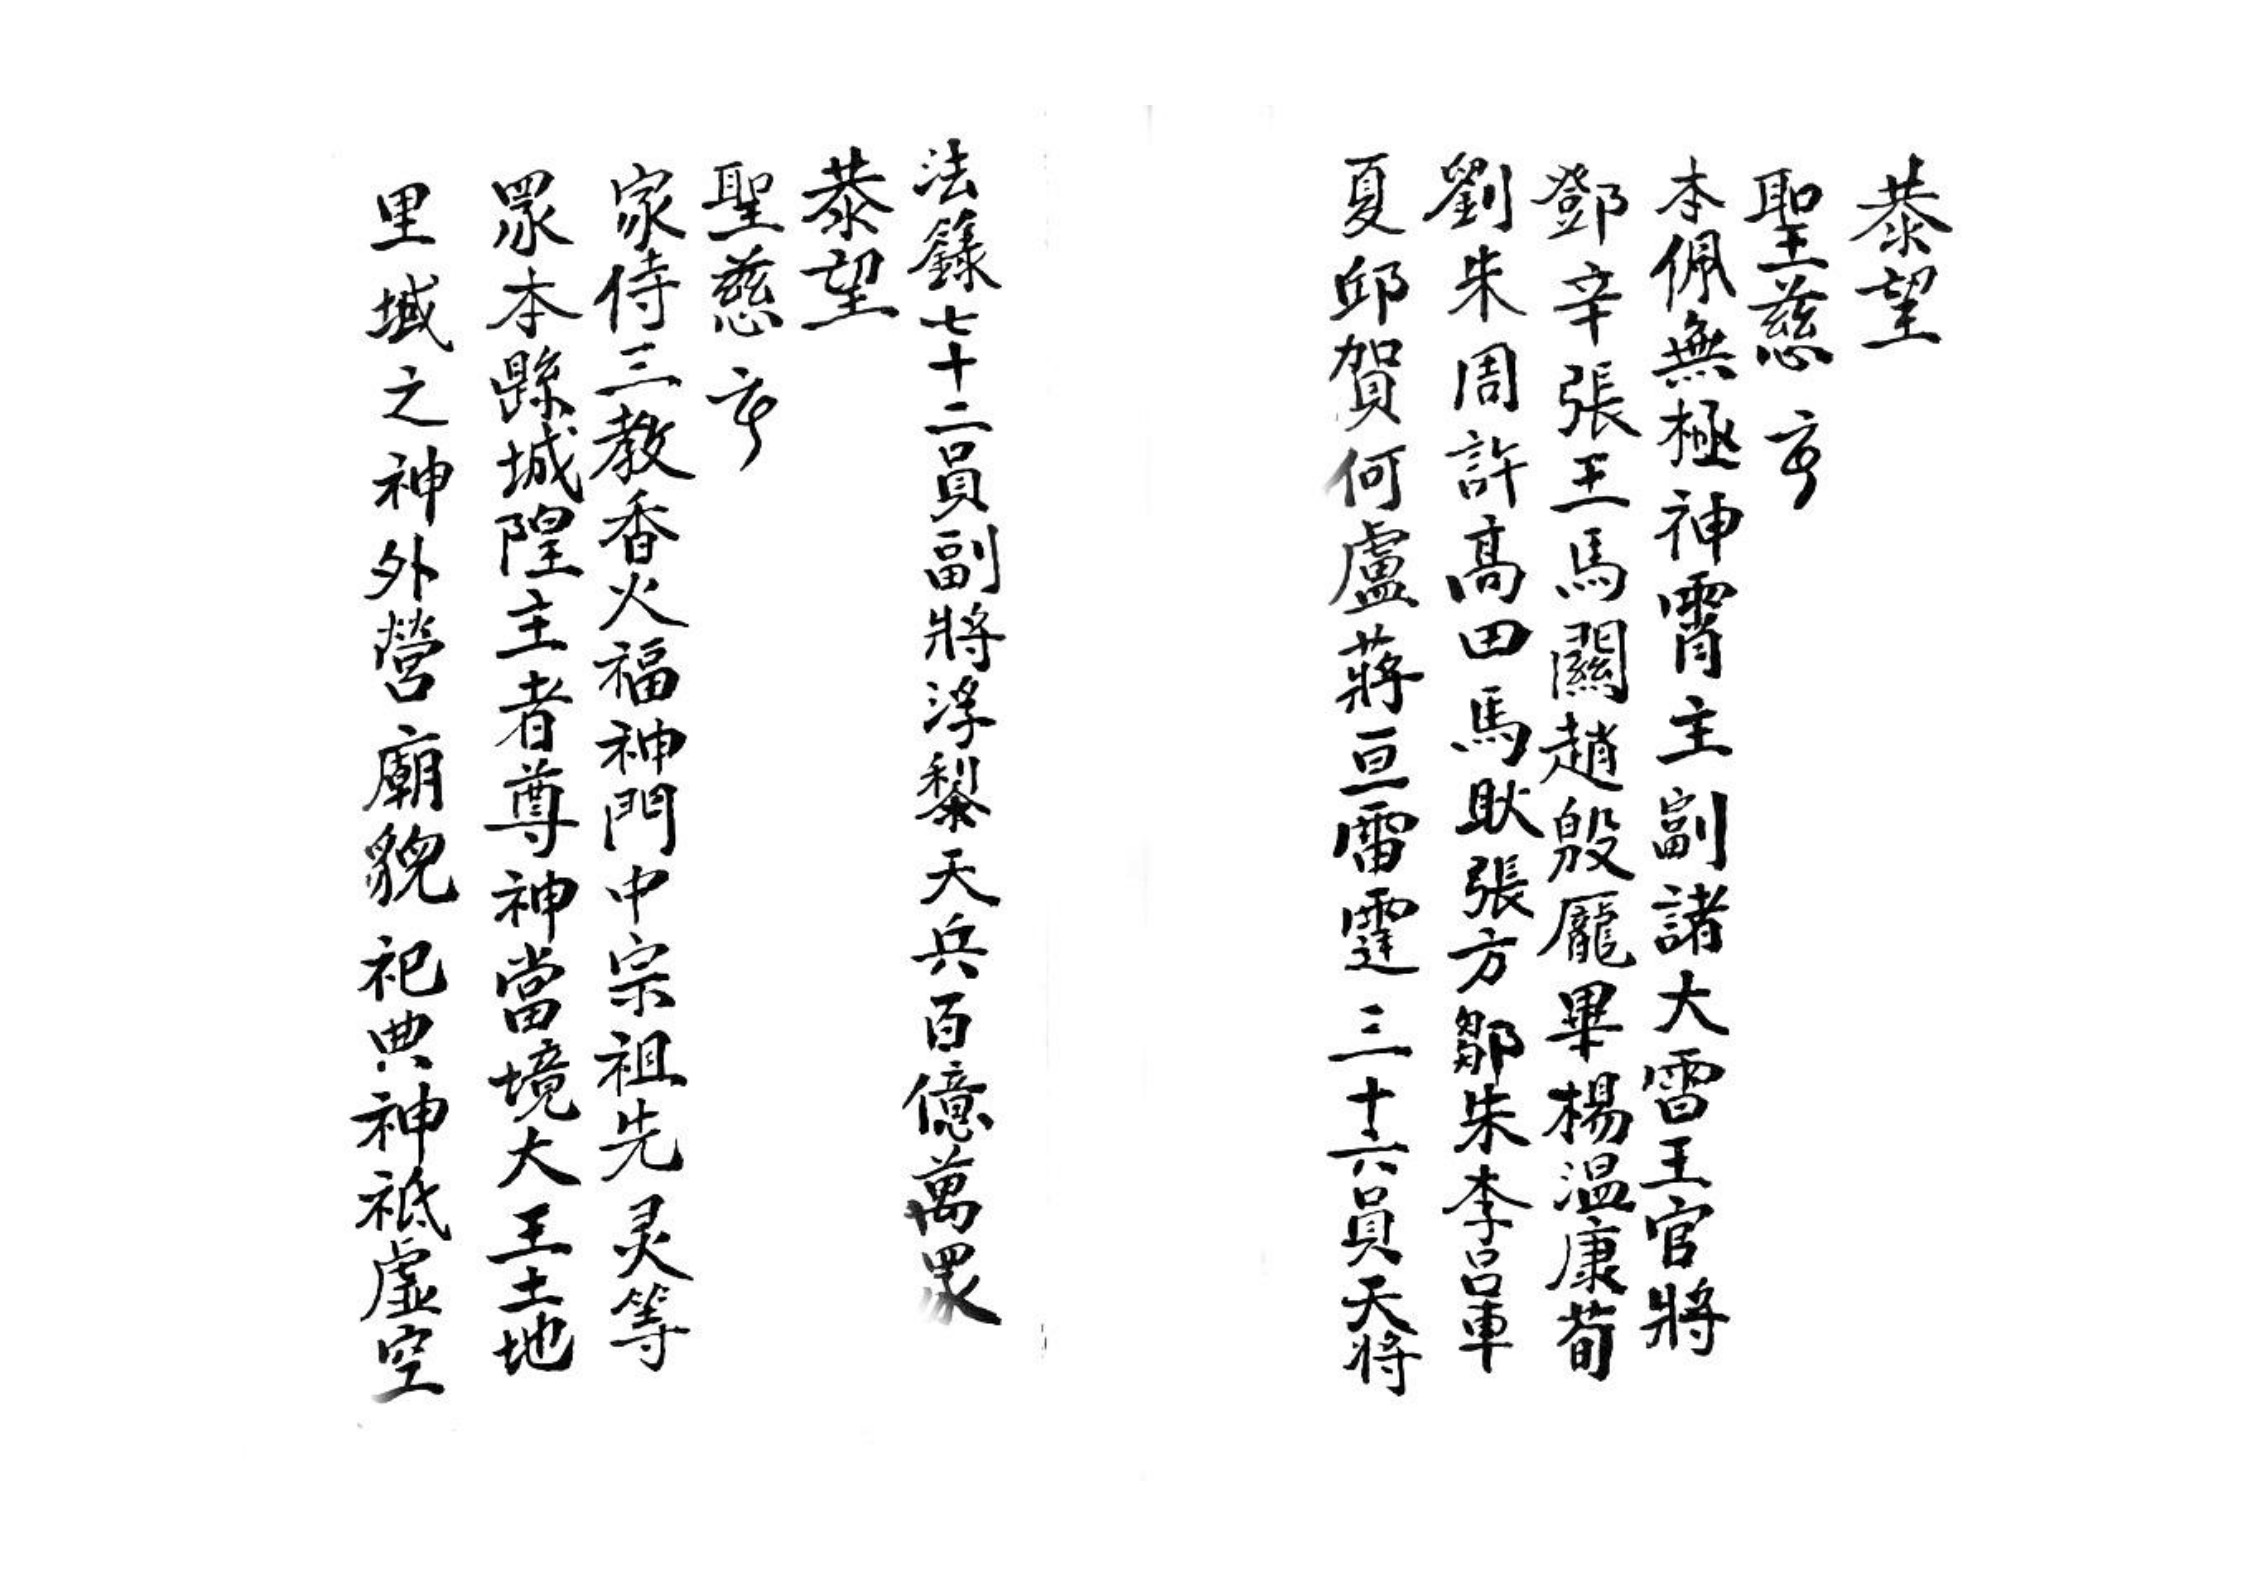 恭望
聖慈
本佩無極神霄主副諸大雷王官將
鄧辛張王馬關趙殷龐畢楊溫康荀
劉朱周許高田馬耿張方鄒朱李呂車
夏邱賀何盧蔣亘雷霆三十六員天將
法籙七十二員副將浮黎天兵百億萬眾
恭望
聖慈
家侍三教香火福神門中宗祖先灵等
眾本縣城隍主者尊神當境大王土地
里域之神外營廟貌祀典神祇虛空